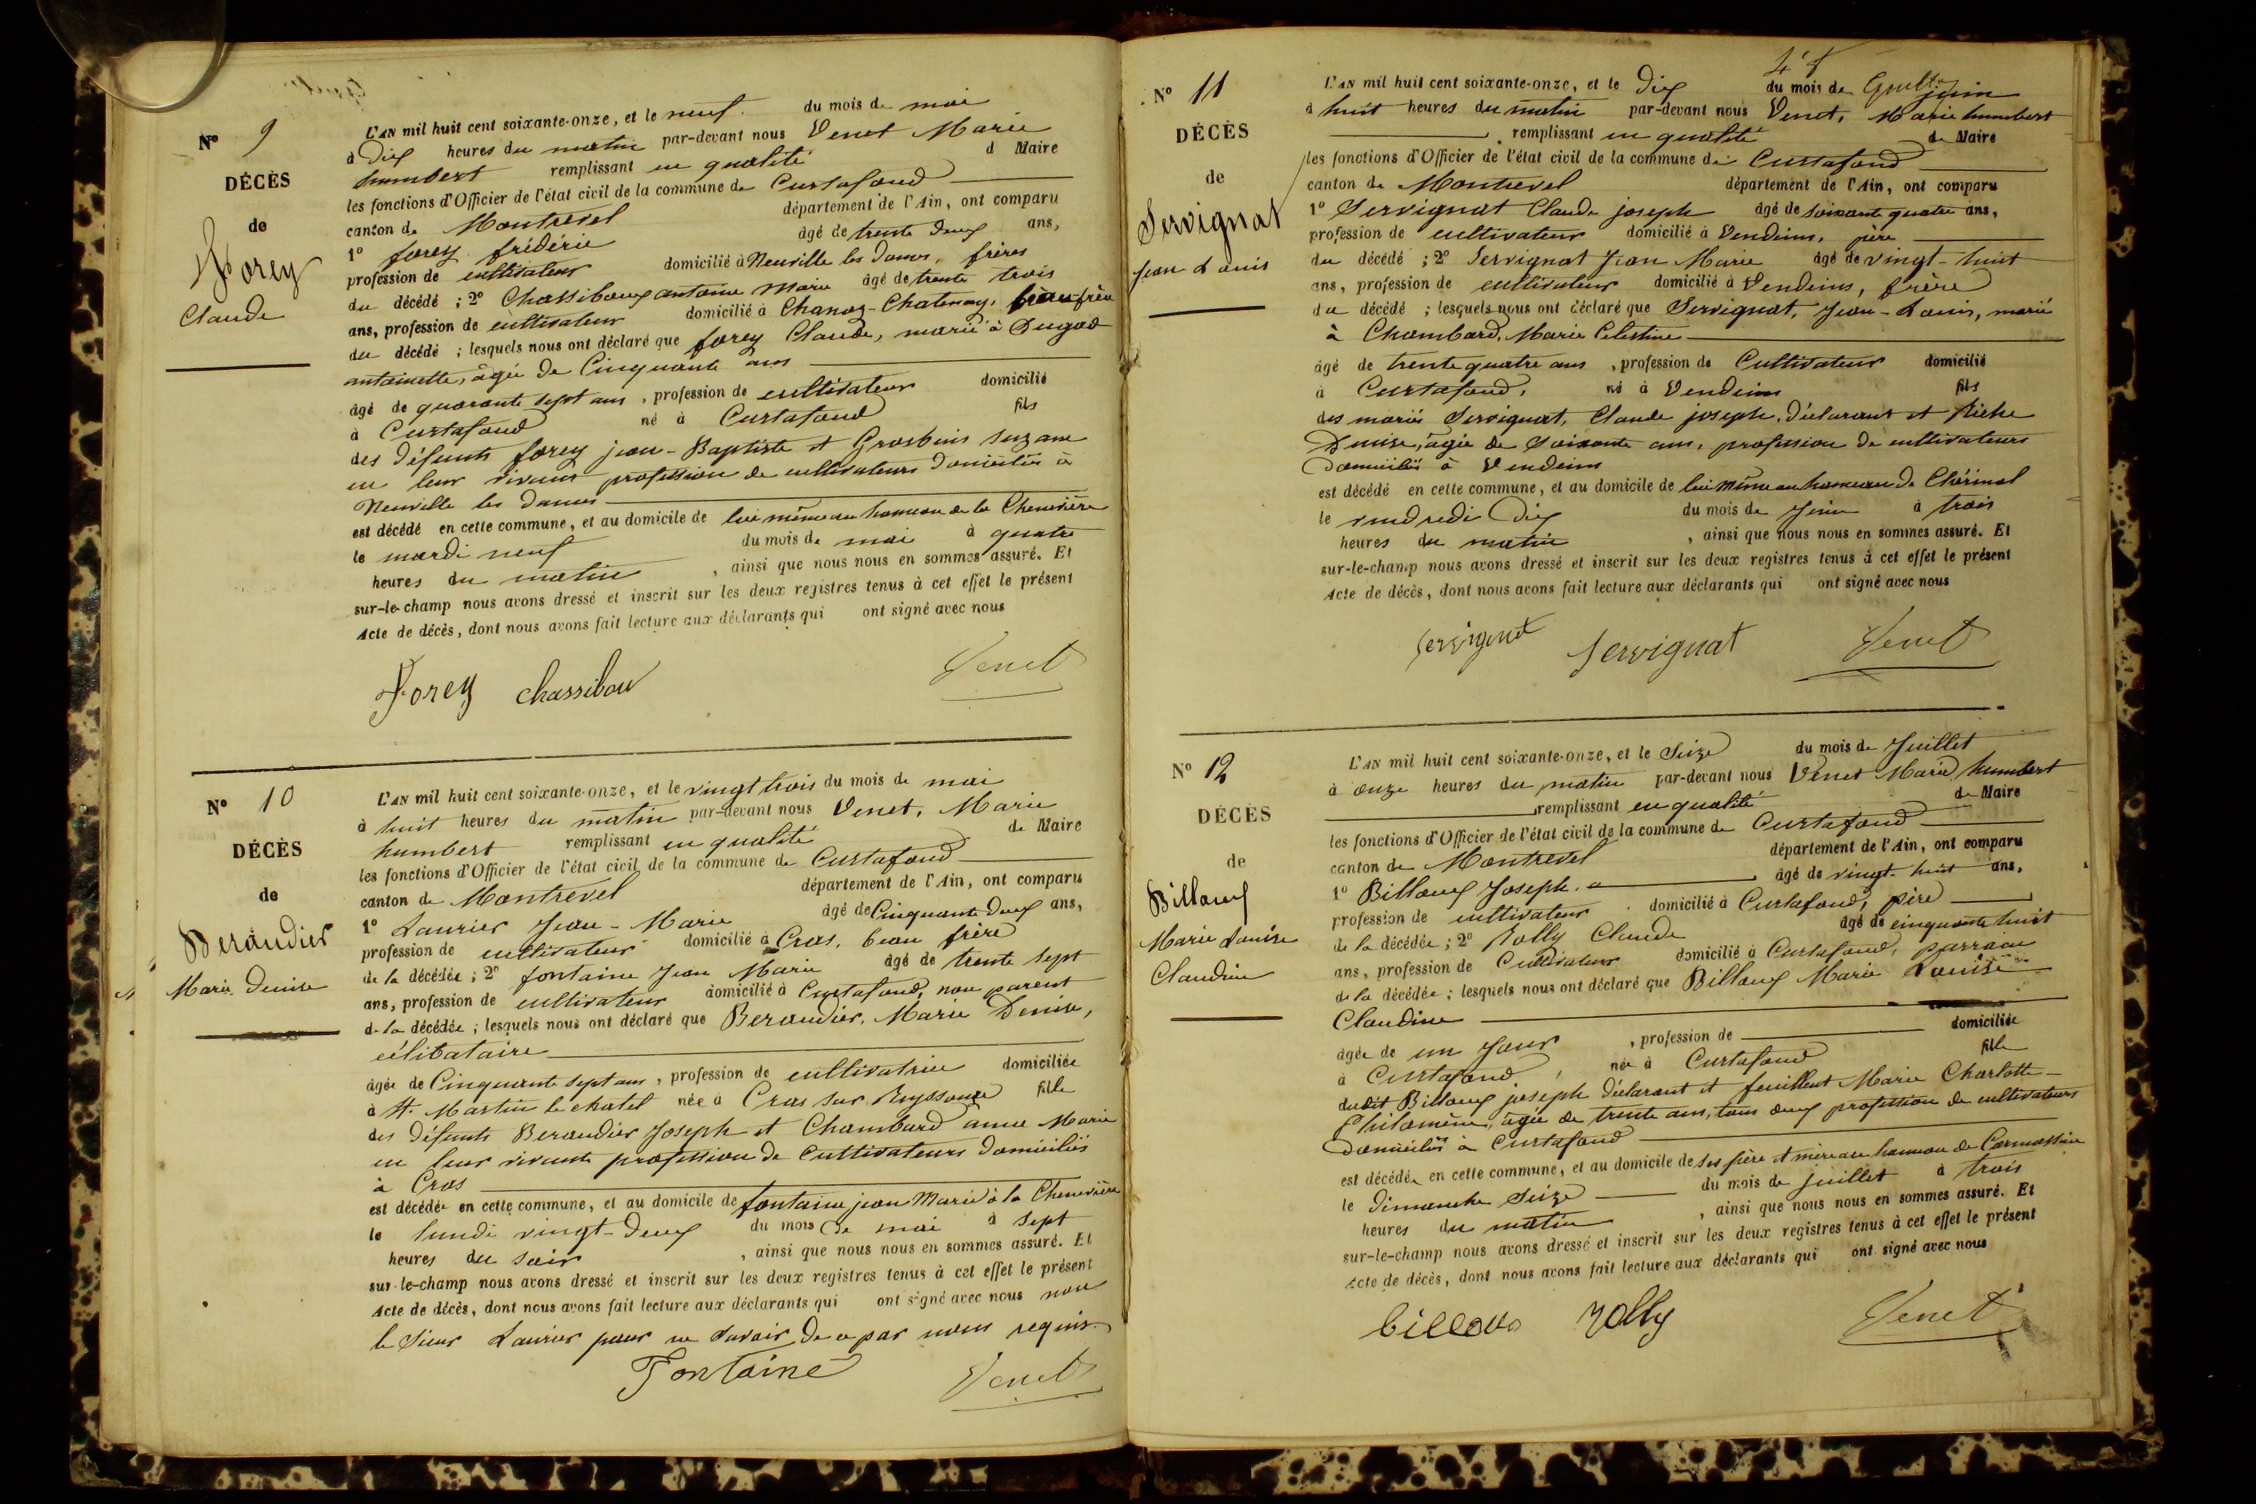 Nº 9
DÉCÈS
de
Forey
Claude
L'AN mil huit cent soixante-onze, et le neuf du mois de mai
à Dix heures du matin par-devant nous Venet Marie
humbert remplissant en qualité d Maire
les fonctions d'Officier de l'état civil de la commune de Curtafond
canton de Montrevel département de l'Ain, ont comparu
1º forey frédéric âgé de trente deux ans,
profession de cultivateur domicilié à Neuville les Dames, frères
du décédé ; 2º Chassiboux antoine Marie âgé de trente trois
ans, profession de cultivateur domicilié à Chanoz-Chatenay, beau frère
du décédé ; lesquels nous ont déclaré que forey Claude, marié à Dugad
antoinette, âgée de Cinquante ans
âgé de quarante sept ans, profession de cultivateur domicilié
à Curtafond né à Curtafond fils
des défunts forey jean-Baptiste et Grosbuis suzane
en leur vivant profession de cultivateurs domiciliés à
Neuville les dames
est décédé en cette commune, et au domicile de lui même au hameau de la Chenevière
le mardi neuf du mois de mai à quatre
heures du matin, ainsi que nous nous en sommes assuré. Et
sur-le-champ nous avons dressé et inscrit sur les deux registres tenus à cet effet le présent
Acte de décès, dont nous avons fait lecture aux déclarants qui ont signé avec nous
Forey chassibou Venet
Nº 10
DÉCÈS
de
Beraudier
Marie Denise
L'AN mil huit cent soixante-onze, et le vingt trois du mois de mai
à huit heures du matin par-devant nous Venet, Marie
humbert remplissant en qualité de Maire
les fonctions d'Officier de l'état civil de la commune de Curtafond
canton de Montrevel département de l'Ain, ont comparu
1º Laurier Jean-Marie âgé de Cinquante Deux ans,
profession de cultivateur domicilié à Cras, beau frère
de la décédée ; 2º fontaine Jean Marie âgé de trente sept
ans, profession de cultivateur domicilié à Curtafond, non parent
de la décédée ; lesquels nous ont déclaré que Beraudier, Marie Denise,
célibataire
âgée de Cinquante sept ans, profession de cultivatrice domiciliée
à St. Martin le chatel née à Cras sur Reyssouze fille
des défunts Beraudier Joseph et Chambard anne Marie
en leur vivant profession de Cultivateurs domiciliés
à Cras
est décédée en cette commune, et au domicile de fontaine jean Marie à la Chenevière
le lundi vingt-deux du mois de mai à sept
heures du soir, ainsi que nous nous en sommes assuré. Et
sur-le-champ nous avons dressé et inscrit sur les deux registres tenus à cet effet le présent
Acte de décès, dont nous avons fait lecture aux déclarants qui ont signé avec nous non
le sieur Laurier pour ne savoir de ce par nous requis.
Fontaine Venet
Nº 11
DÉCÈS
de
Servignat
Jean Louis
L'AN mil huit cent soixante-onze, et le Dix du mois de juin
à huit heures du matin par-devant nous Venet, Marie humbert
remplissant en qualité de Maire
les fonctions d'Officier de l'état civil de la commune de Curtafond
canton de Montrevel département de l'Ain, ont comparu
1º Servignat Claude joseph âgé de soixante quatre ans,
profession de cultivateur domicilié à Vendeins, père
du décédé ; 2º Servignat Jean Marie âgé de vingt-huit
ans, profession de cultivateur domicilié à Vendeins, frère
du décédé ; lesquels nous ont déclaré que Servignat, Jean-Louis, marié
à Chambard, Marie Celestine
âgé de trente quatre ans, profession de Cultivateur domicilié
à Curtafond, né à Vendeins fils
des mariés Servignat, Claude joseph, déclarant et Riche
Denise, âgée de soixante ans, profession de cultivateurs
domiciliés à Vendeins
est décédé en cette commune, et au domicile de lui même au hameau de Chérinal
le vendredi Dix du mois de Juin à trois
heures du matin, ainsi que nous nous en sommes assuré. Et
sur-le-champ nous avons dressé et inscrit sur les deux registres tenus à cet effet le présent
Acte de décès, dont nous avons fait lecture aux déclarants qui ont signé avec nous
servignat Servignat Venet
Nº 12
DÉCÈS
de
Billoux
Marie Louise
Claudine
L'AN mil huit cent soixante-onze, et le Seize du mois de Juillet
à onze heures du matin par-devant nous Venet Marie humbert
remplissant en qualité de Maire
les fonctions d'Officier de l'état civil de la commune de Curtafond
canton de Montrevel département de l'Ain, ont comparu
1º Billoux Joseph. âgé de vingt-huit ans,
profession de cultivateur domicilié à Curtafond, père
de la décédée ; 2º Jolly Claude âgé de cinquante huit
ans, profession de Cultivateur domicilié à Curtafond, parrain
de la décédée ; lesquels nous ont déclaré que Billoux Marie Louise
Claudine
âgée de un jour, profession de domiciliée
à Curtafond, née à Curtafond fille
dudit Billoux joseph déclarant et feuillent Marie Charlotte
Philomène, âgée de trente ans, tous deux profession de cultivateurs
domiciliés à Curtafond
est décédée en cette commune, et au domicile de ses père et mère au hameau de Carmassin
le dimanche seize du mois de juillet à trois
heures du matin, ainsi que nous nous en sommes assuré. Et
sur-le-champ nous avons dressé et inscrit sur les deux registres tenus à cet effet le présent
Acte de décès, dont nous avons fait lecture aux déclarants qui ont signé avec nous
billoux Jolly Venet